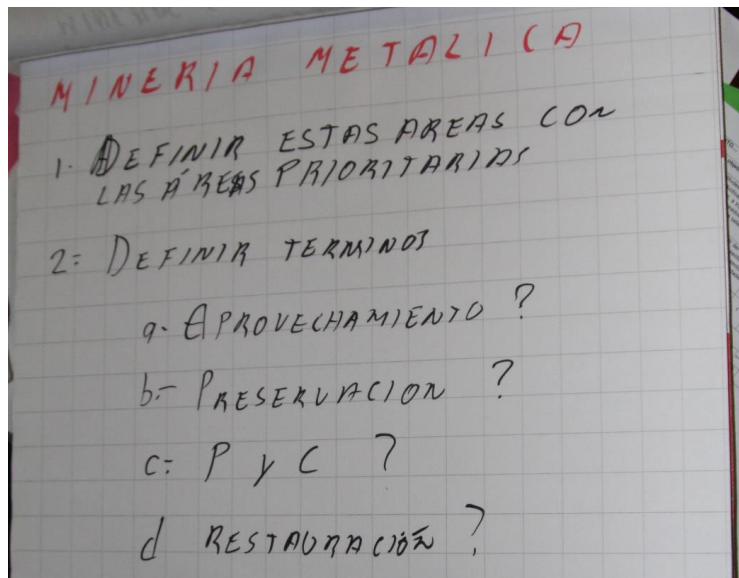 MINERIA METALICA
1. DEFINIR ESTAS AREAS CON
LAS ÁREAS PRIORITARIAS
2= DEFINIR TERMINOS
a- APROVECHAMIENTO ?
b.- PRESERVACION ?
c= P y C ?
d RESTAURACIÓN ?